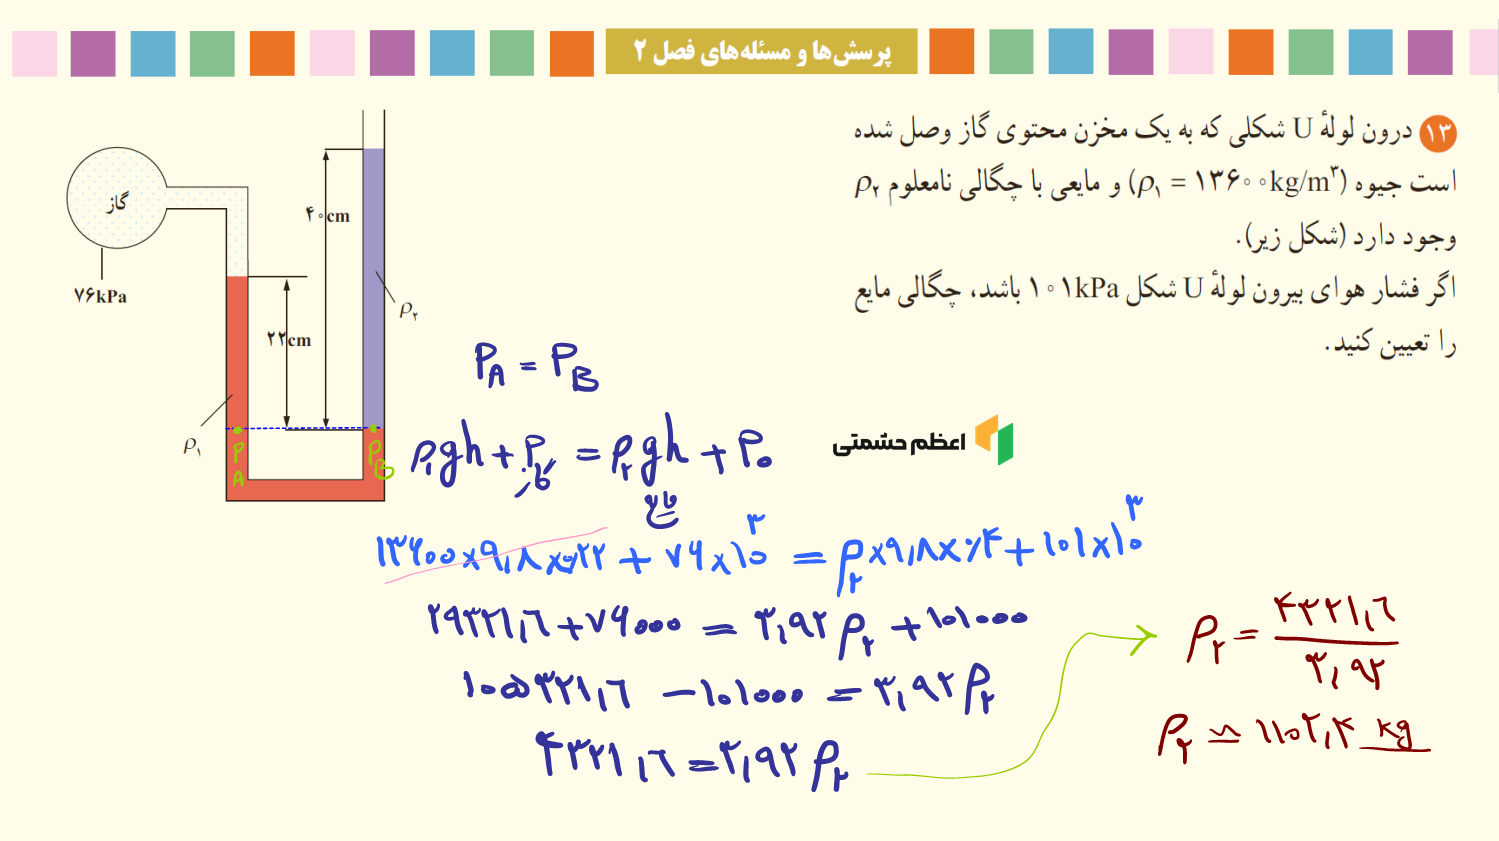 پرسش‌ها و مسئله‌های فصل ۲
۱۳ درون لولهٔ U شکلی که به یک مخزن محتوی گاز وصل شده
است جیوه (ρ₁ = ۱۳۶۰۰kg/m³) و مایعی با چگالی نامعلوم ρ₂
وجود دارد (شکل زیر).
اگر فشار هوای بیرون لولهٔ U شکل ۱۰۱kPa باشد، چگالی مایع
را تعیین کنید.
گاز
۴۰cm
۷۶kPa
ρ₂
۲۲cm
ρ₁
P_A
P_B
P_A = P_B
اعظم حشمتی
ρ₁gh + P گاز = ρ₂gh + P₀
مایع
۱۳۶۰۰×۹٫۸×۰٫۲۲ + ۷۶×۱۰³ = ρ₂×۹٫۸×۰٫۴ + ۱۰۱×۱۰³
۲۹۳۲۱٫۶ + ۷۶۰۰۰ = ۳٫۹۲ρ₂ + ۱۰۱۰۰۰
۱۰۵۳۲۱٫۶ − ۱۰۱۰۰۰ = ۳٫۹۲ρ₂
۴۳۲۱٫۶ = ۳٫۹۲ρ₂
ρ₂ = ۴۳۲۱٫۶ / ۳٫۹۲
ρ₂ ≃ ۱۱۰۲٫۴ kg